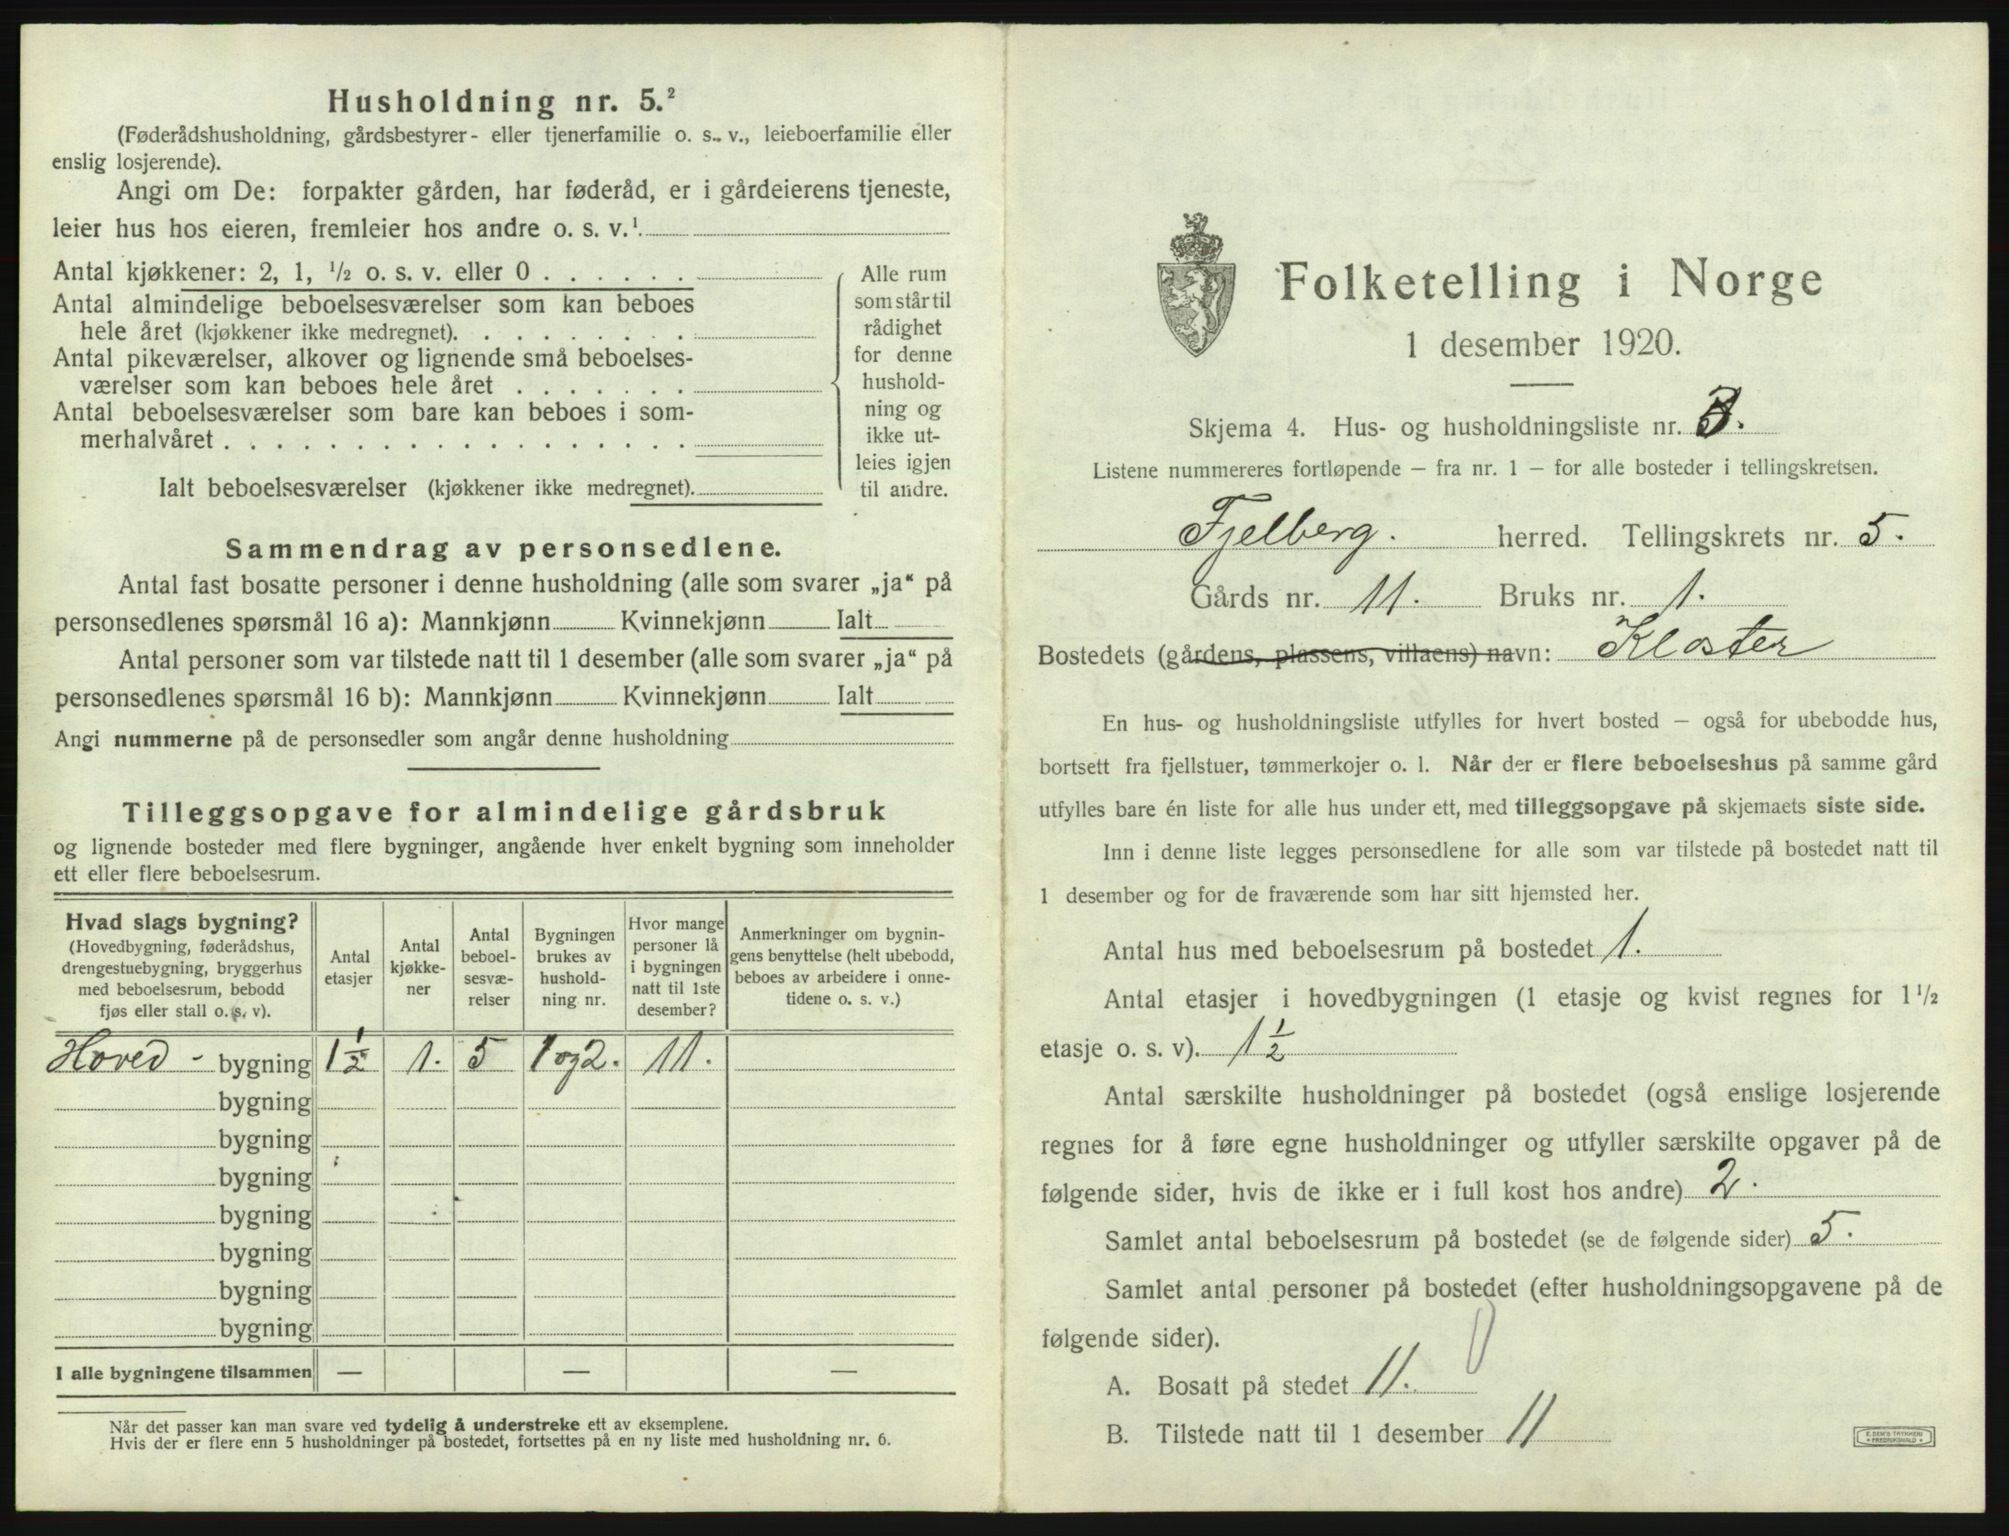 Husholdning nr. 5.²
(Føderådshusholdning, gårdsbestyrer- eller tjenerfamilie o. s. v., leieboerfamilie eller
enslig losjerende).
Angi om De: forpakter gården, har føderåd, er i gårdeierens tjeneste,
leier hus hos eieren, fremleier hos andre o. s. v.¹
Antal kjøkkener: 2, 1, ½ o. s. v. eller 0 . . . . . .
Antal almindelige beboelsesværelser som kan beboes
hele året (kjøkkener ikke medregnet). . . . . . . . .
Antal pikeværelser, alkover og lignende små beboelses-
værelser som kan beboes hele året . . . . . . .
Antal beboelsesværelser som bare kan beboes i som-
merhalvåret . . . . . . . . . . . . . . . . . .
Ialt beboelsesværelser (kjøkkener ikke medregnet).
Alle rum
som står til
rådighet
for denne
hushold-
ning og
ikke ut-
leies igjen
til andre.
Sammendrag av personsedlene.
Antal fast bosatte personer i denne husholdning (alle som svarer „ja“ på
personsedlenes spørsmål 16 a): Mannkjønn Kvinnekjønn Ialt
Antal personer som var tilstede natt til 1 desember (alle som svarer „ja“ på
personsedlenes spørsmål 16 b): Mannkjønn Kvinnekjønn Ialt
Angi nummerne på de personsedler som angår denne husholdning
Tilleggsopgave for almindelige gårdsbruk
og lignende bosteder med flere bygninger, angående hver enkelt bygning som inneholder
ett eller flere beboelsesrum.
Hvad slags bygning?
(Hovedbygning, føderådshus,
drengestuebygning, bryggerhus
med beboelsesrum, bebodd
fjøs eller stall o. s. v).
Antal
etasjer
Antal
kjøkke-
ner
Antal
beboel-
sesvæ-
relser
Bygningen
brukes av
hushold-
ning nr.
Hvor mange
personer lå
i bygningen
natt til 1ste
desember?
Anmerkninger om bygnin-
gens benyttelse (helt ubebodd,
beboes av arbeidere i onne-
tidene o. s. v.)
Hoved - bygning 1½ 1. 5 1 og 2. 11.
bygning
bygning
bygning
bygning
bygning
bygning
bygning
I alle bygningene tilsammen — — —
Når det passer kan man svare ved tydelig å understreke ett av eksemplene.
Hvis der er flere enn 5 husholdninger på bostedet, fortsettes på en ny liste med husholdning nr. 6.
Folketelling i Norge
1 desember 1920.
Skjema 4. Hus- og husholdningsliste nr. 3.
Listene nummereres fortløpende — fra nr. 1 — for alle bosteder i tellingskretsen.
Fjelberg. herred. Tellingskrets nr. 5.
Gårds nr. 11. Bruks nr. 1.
Bostedets (gårdens, plassens, villaens) navn: Kloster
En hus- og husholdningsliste utfylles for hvert bosted — også for ubebodde hus,
bortsett fra fjellstuer, tømmerkojer o. l. Når der er flere beboelseshus på samme gård
utfylles bare én liste for alle hus under ett, med tilleggsopgave på skjemaets siste side.
Inn i denne liste legges personsedlene for alle som var tilstede på bostedet natt til
1 desember og for de fraværende som har sitt hjemsted her.
Antal hus med beboelsesrum på bostedet 1.
Antal etasjer i hovedbygningen (1 etasje og kvist regnes for 1½
etasje o. s. v). 1½
Antal særskilte husholdninger på bostedet (også enslige losjerende
regnes for å føre egne husholdninger og utfyller særskilte opgaver på de
følgende sider, hvis de ikke er i full kost hos andre) 2.
Samlet antal beboelsesrum på bostedet (se de følgende sider) 5.
Samlet antal personer på bostedet (efter husholdningsopgavene på de
følgende sider).
A. Bosatt på stedet 11.
B. Tilstede natt til 1 desember 11